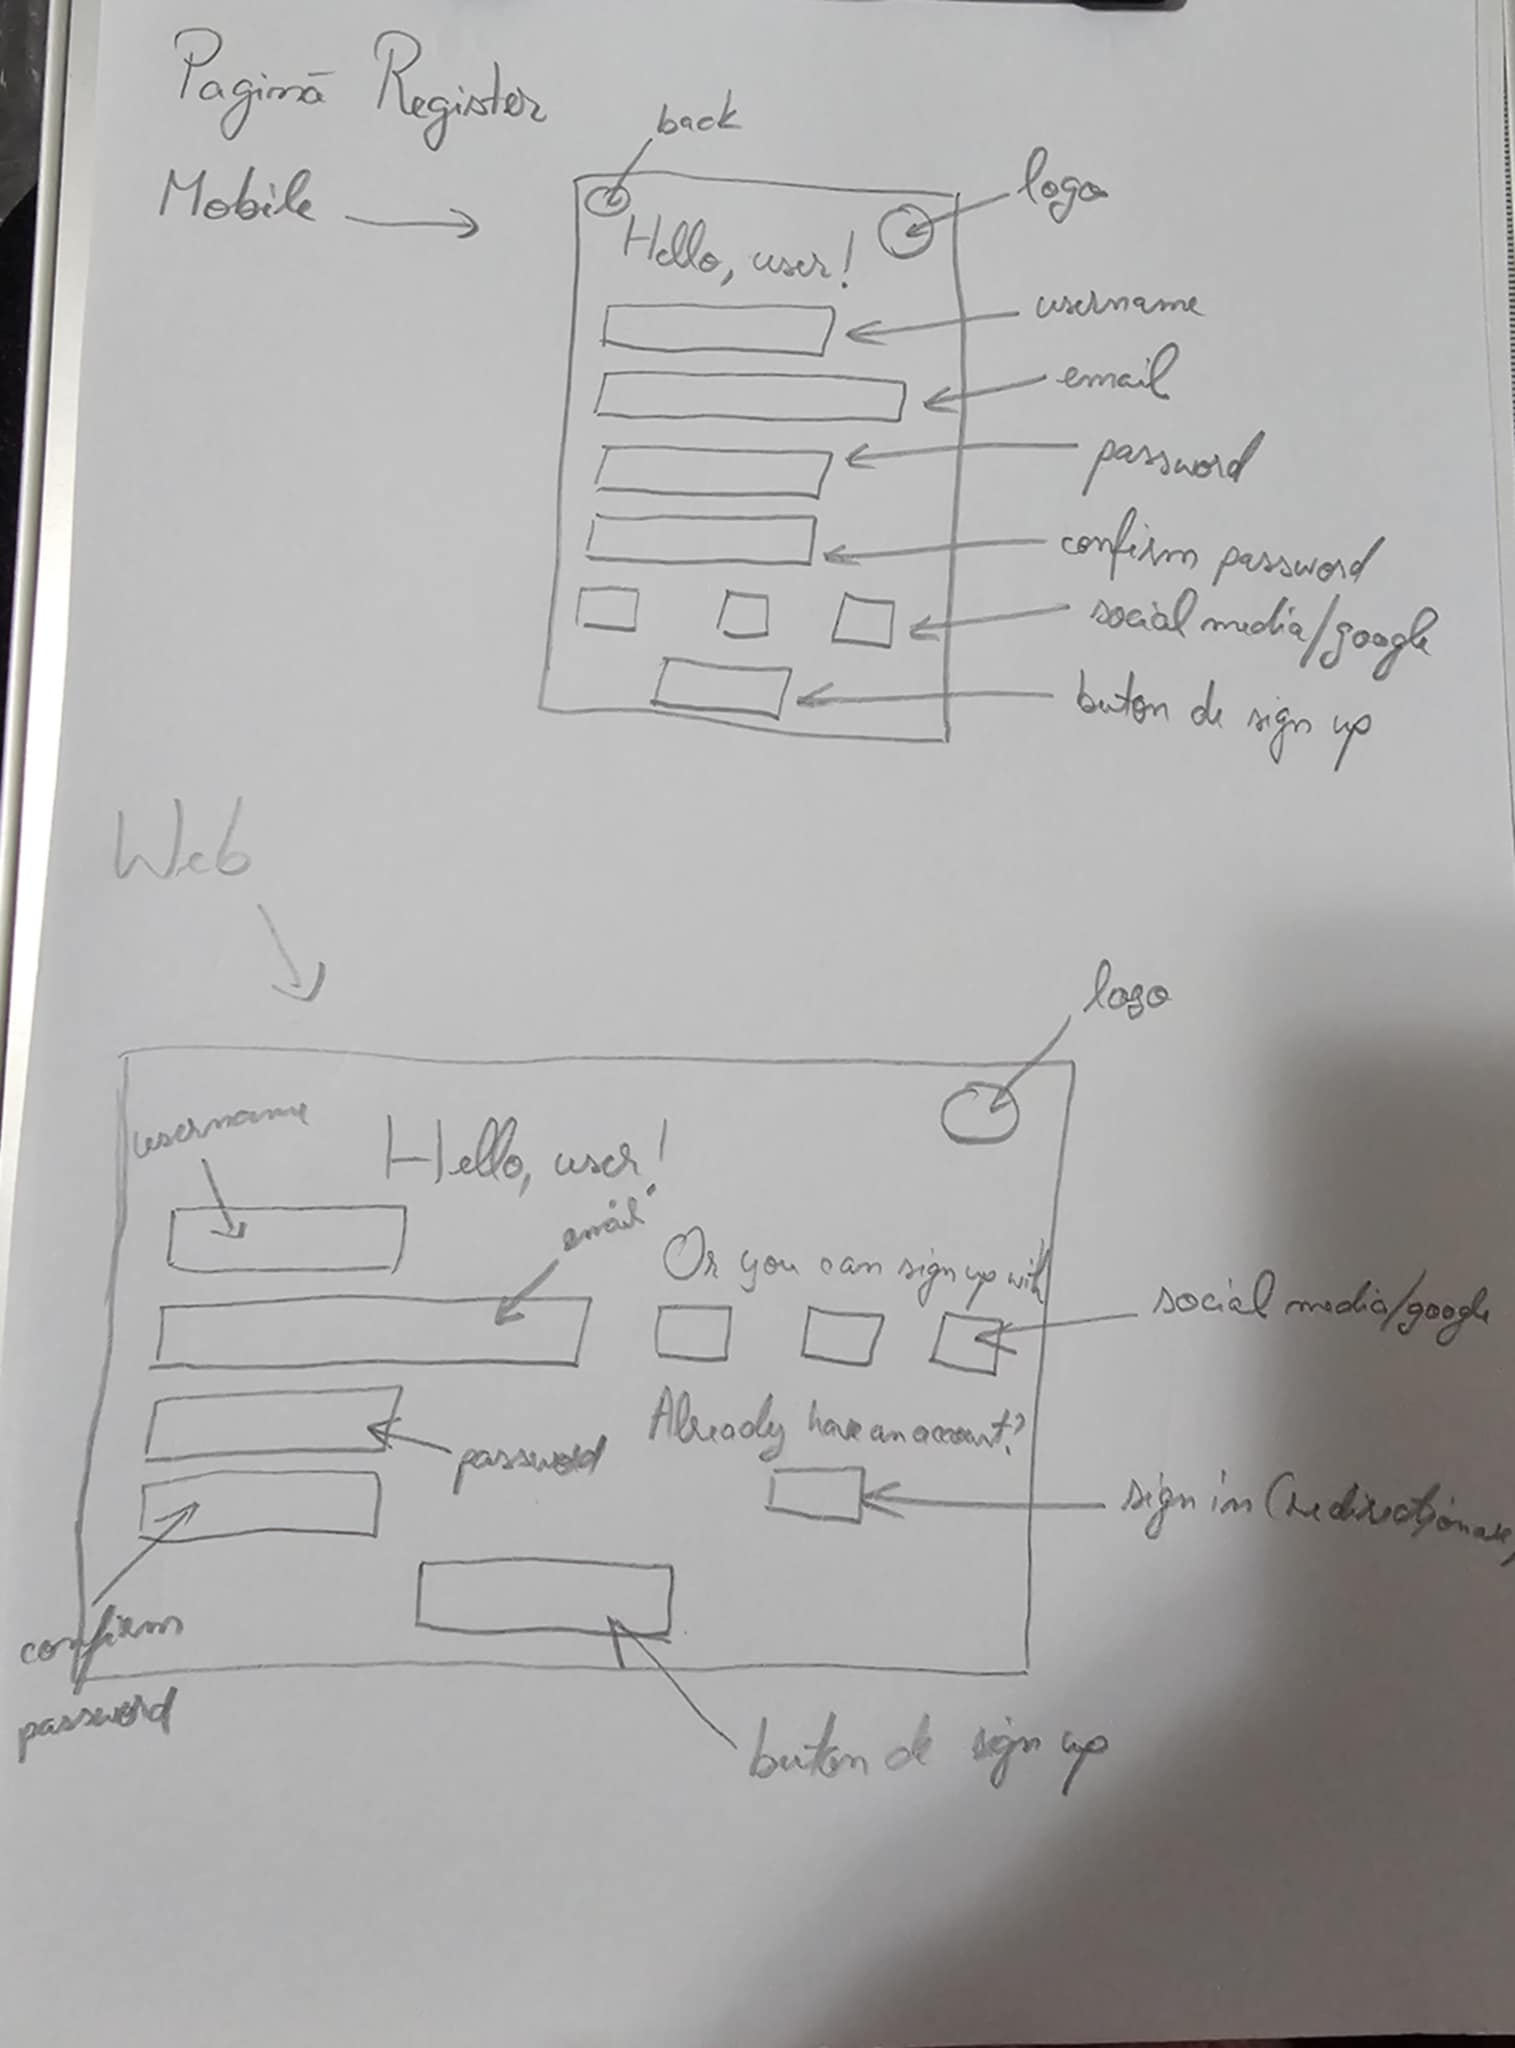 Pagină Register
back
Mobile
logo
Hello, user!
username
email
password
confirm password
social media/google
buton de sign up
Web
logo
username
Hello, user!
email
Or you can sign up with
social media/google
Already have an account?
password
sign in (redirecționare)
confirm
password
buton de sign up